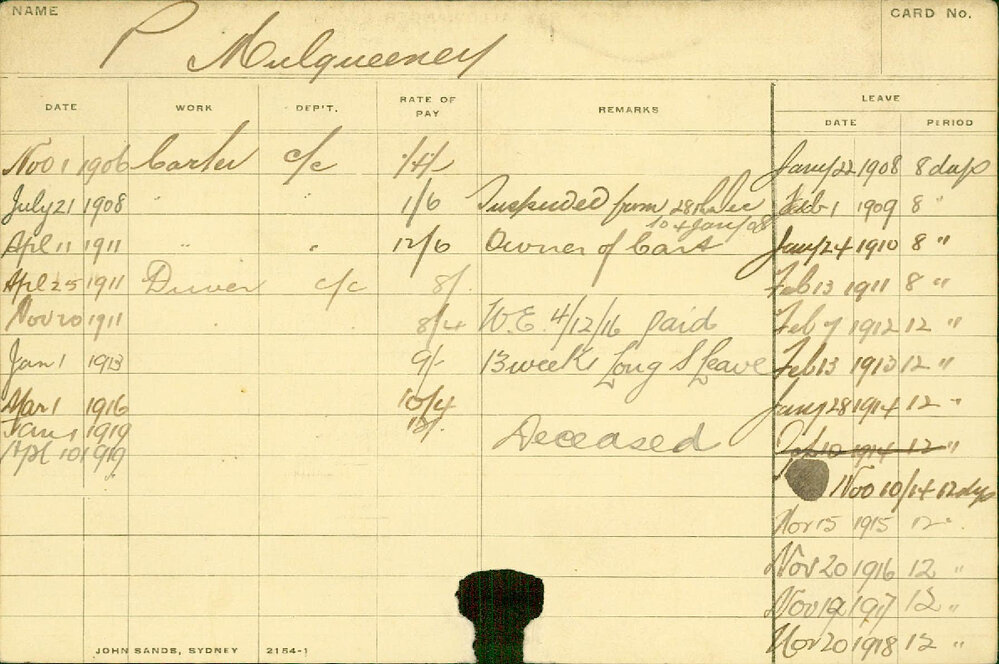 NAME CARD No.
P Mulqueeney
DATE WORK DEP'T. RATE OF PAY REMARKS LEAVE
DATE PERIOD
Nov 1 1906 Carter c/c Jany 22 1908 8 days
July 21 1908 " " 1/6 Suspended from 28th Dec Feb 1 1909 8 "
to 4 Jany/08
Apl 11 1911 " " 12/6 Owner of Cart Jany 24 1910 8 "
Apl 25 1911 Driver c/c 8/- Feb 13 1911 8 "
Nov 20 1911 8/4 W.E. 4/12/16 paid Feb 7 1912 12 "
Jan 1 1913 9/- 13 weeks Long S Leave Feb 13 1913 12 "
Mar 1 1916 10/4 Jany 28 1914 12 "
Jany 1 1919 Deceased Feb 10 1914 12 "
Apl 10 1919
Nov 10/14 12 dys
Nov 15 1915 12 "
Nov 20 1916 12 "
Nov 19 1917 12 "
Nov 20 1918 12 "
JOHN SANDS, SYDNEY 2154-1